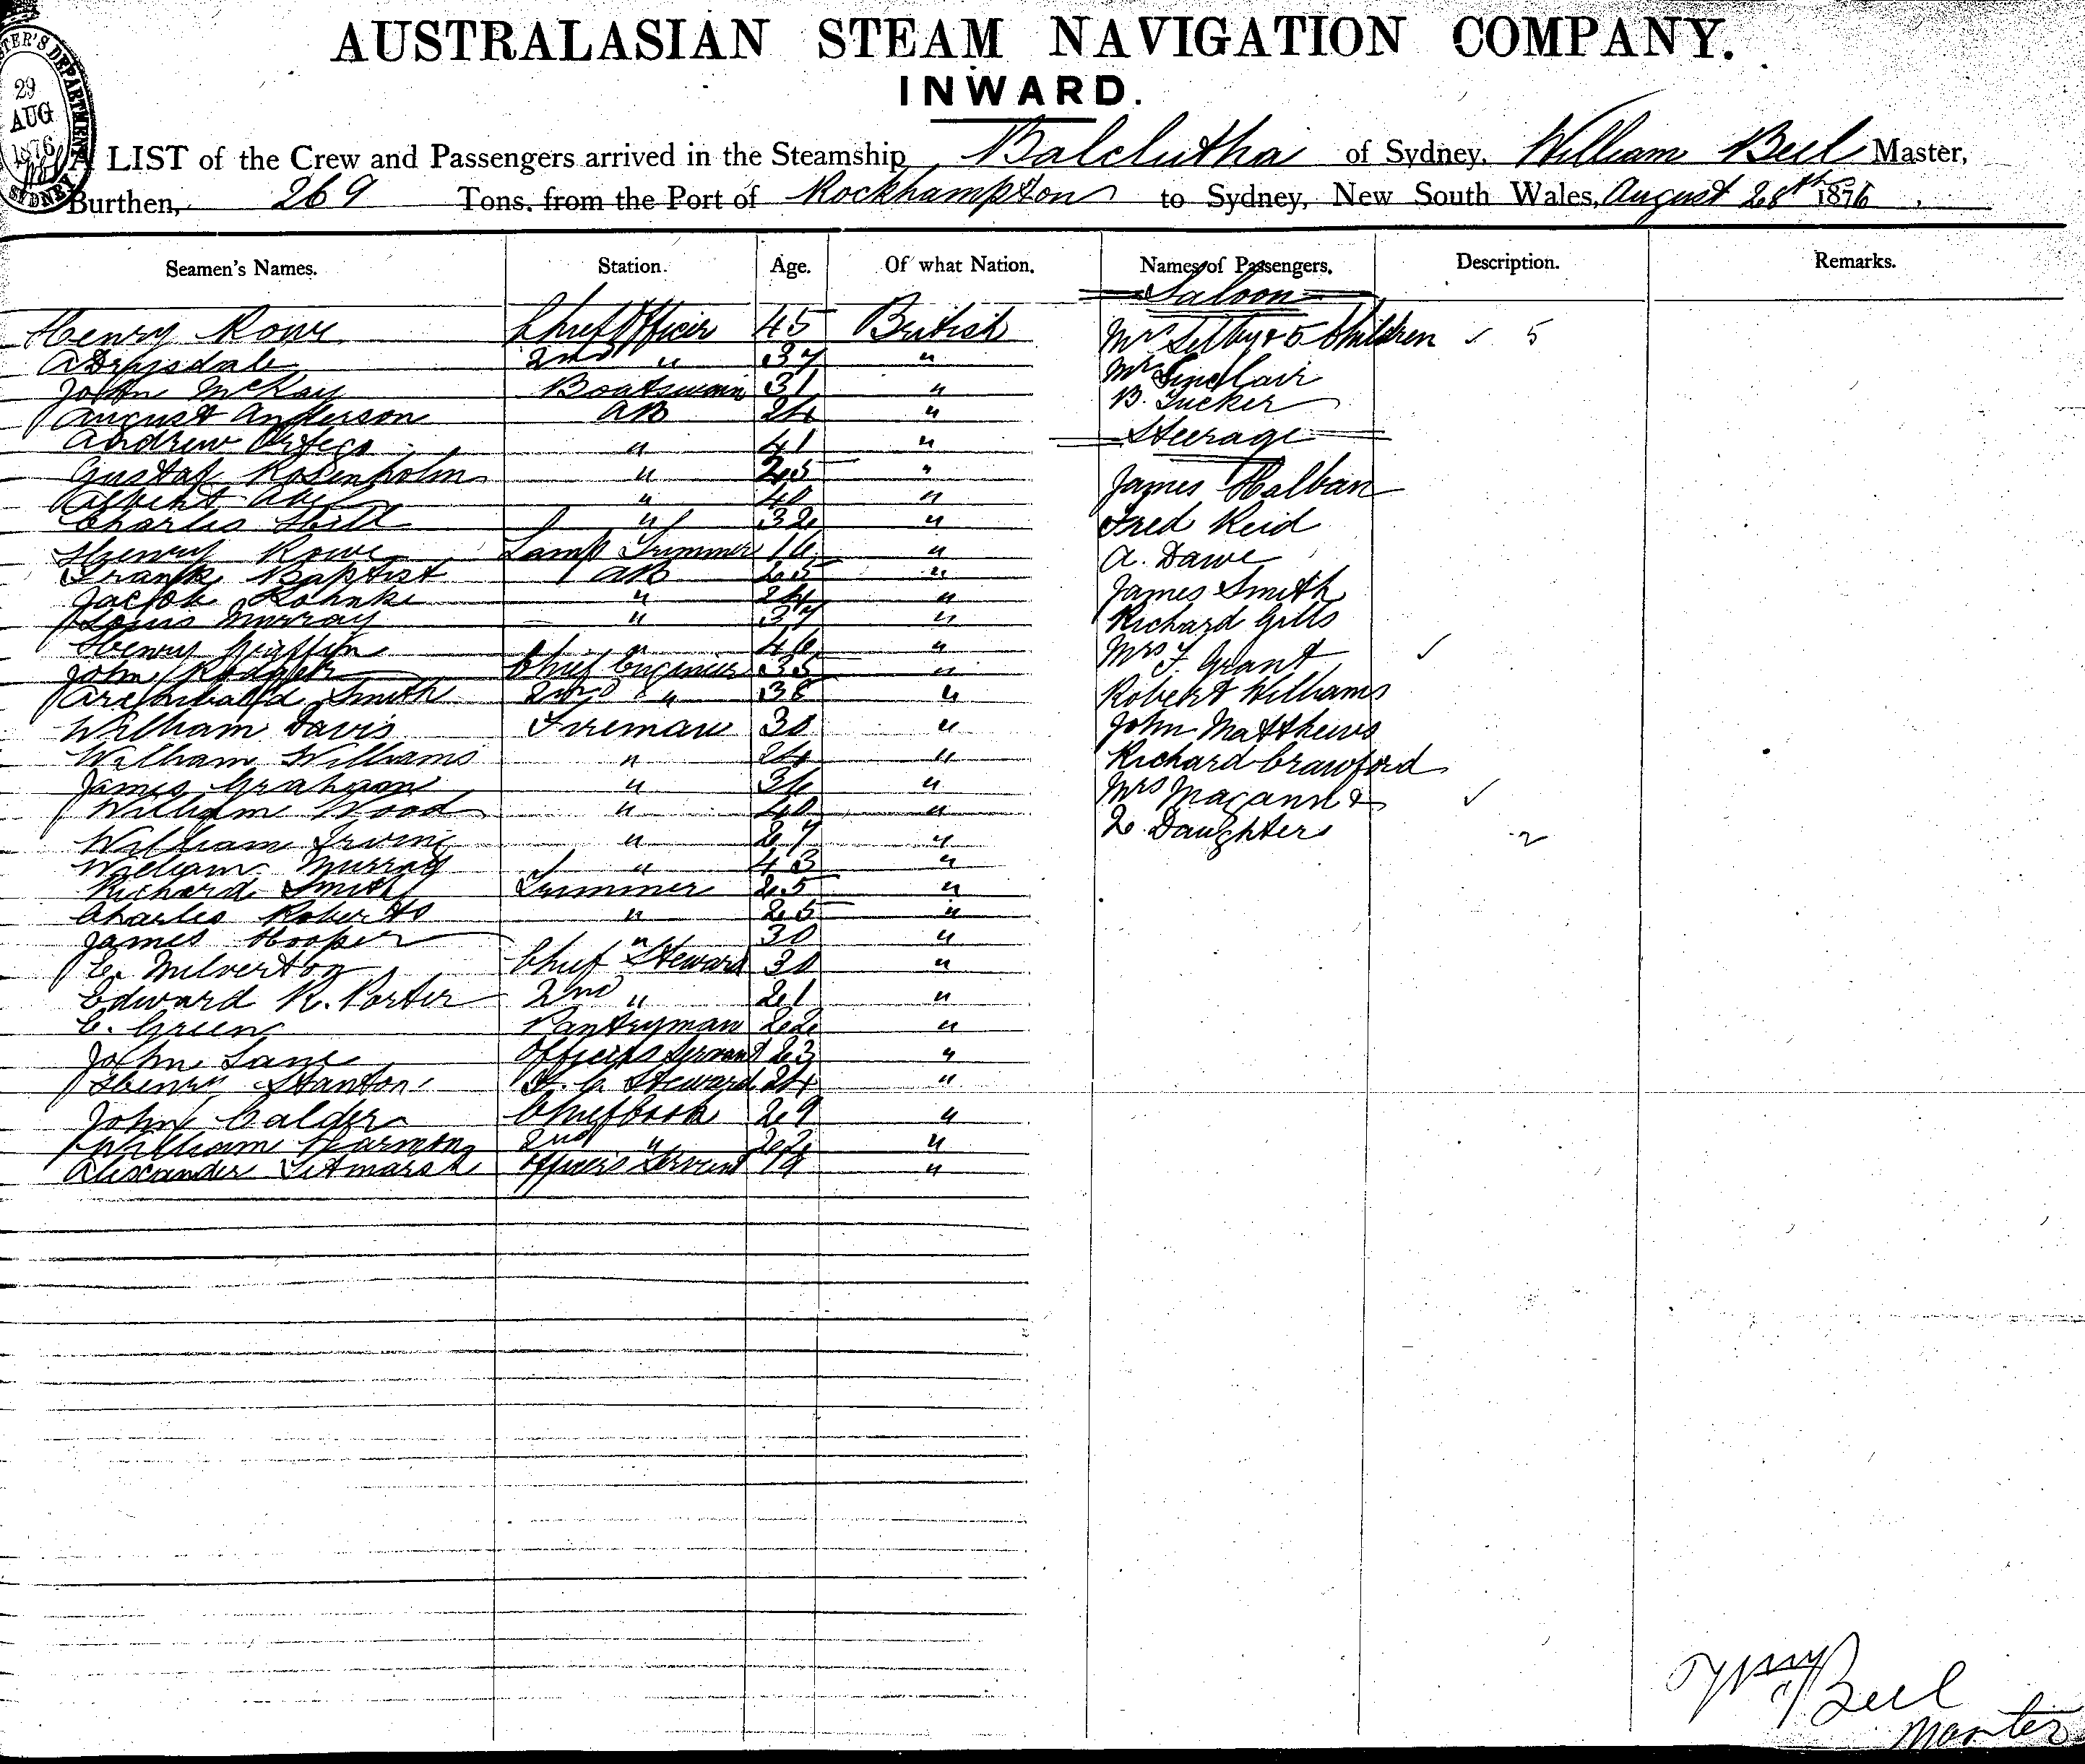 AUSTRALASIAN STEAM NAVIGATION COMPANY.
INWARD.
29
AUG
1876
SYDNEY
A LIST of the Crew and Passengers arrived in the Steamship Balclutha of Sydney, William Beel Master,
Burthen, 269 Tons, from the Port of Rockhampton to Sydney, New South Wales, August 28th 1876
Seamen's Names. Station. Age. Of what Nation. Names of Passengers. Description. Remarks.
Saloon
Henry Rowe Chief Officer 45 British Mr Selby & 5 Children ✓ 5
A Drysdale 2nd " 37 " Mr Sinclair
John McKay Boatswain 31 " B. Tucker
August Anderson AB 24 " Steerage
Andrew " 41 "
Gustaf Rosenholm " 25 " James Halban
Albert Abel " 40 "
Charles Hill " 32 " Fred Reid
Henry Rowe Lamp Trimmer 16 " A. Dawe
Frank Baptist AB 25 " James Smith
Jacob Rohnke " 24 "
Louis Murray " 37 " Richard Gills
Henry Griffin " 46 " Mrs F. Grant ✓
John Chief Engineer 35 "
Archibald Smith 2nd " 38 " Robert Williams
William Davis Fireman 30 " John Matthews
William Williams " 24 " Richard Crawford
James Graham " 36 " Mrs Macann & ✓
William Wood " 40 " 2 Daughters 2
William Irving " 27 "
William Murray " 43 "
Richard Smith Trimmer 25 "
Charles Roberts " 25 "
James Hooper " 30 "
E. Milverton Chief Steward 30 "
Edward R. Porter 2nd " 21 "
C. Green Pantryman 22 "
John Lane Officers Servant 23 "
Henry Stanton F. C. Steward 24 "
John Calder Chief Cook 29 "
William Harmon 2nd " 22 "
Alexander Titmarsh Officers Servant 19 "
Wm Beel
Master